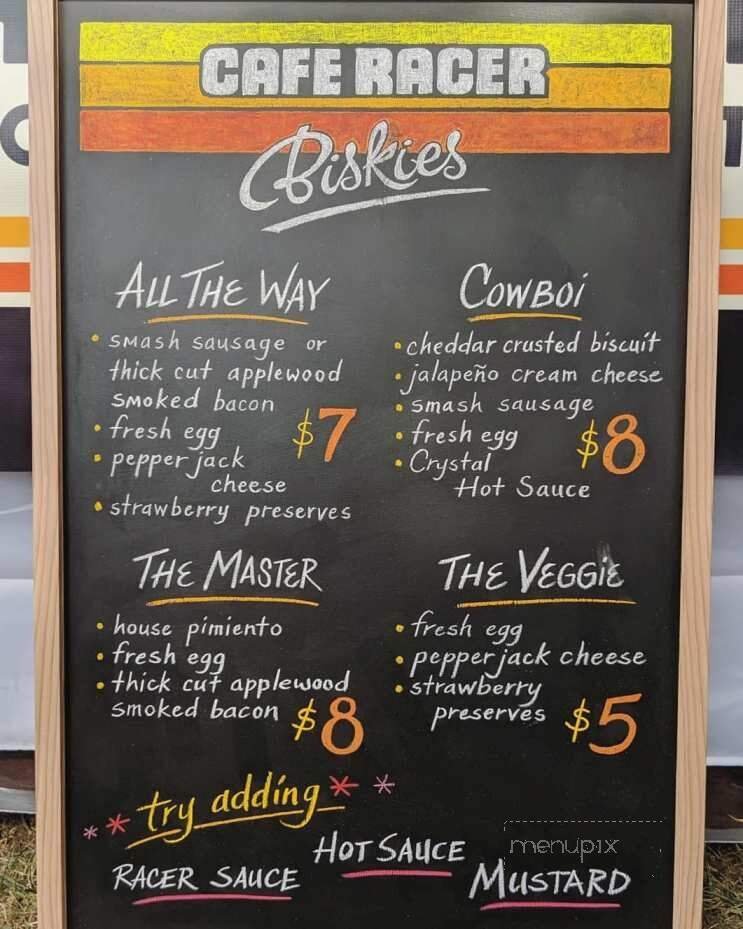 CAFE RACER
Biskies
ALL THE WAY
• smash sausage or
thick cut applewood
smoked bacon
• fresh egg
• pepper jack
cheese
• strawberry preserves
$7
COWBOI
• cheddar crusted biscuit
• jalapeño cream cheese
• smash sausage
• fresh egg
• Crystal
Hot Sauce
$8
THE MASTER
• house pimiento
• fresh egg
• thick cut applewood
smoked bacon
$8
THE VEGGIE
• fresh egg
• pepper jack cheese
• strawberry
preserves
$5
** try adding **
RACER SAUCE
HOT SAUCE
MUSTARD
menupix